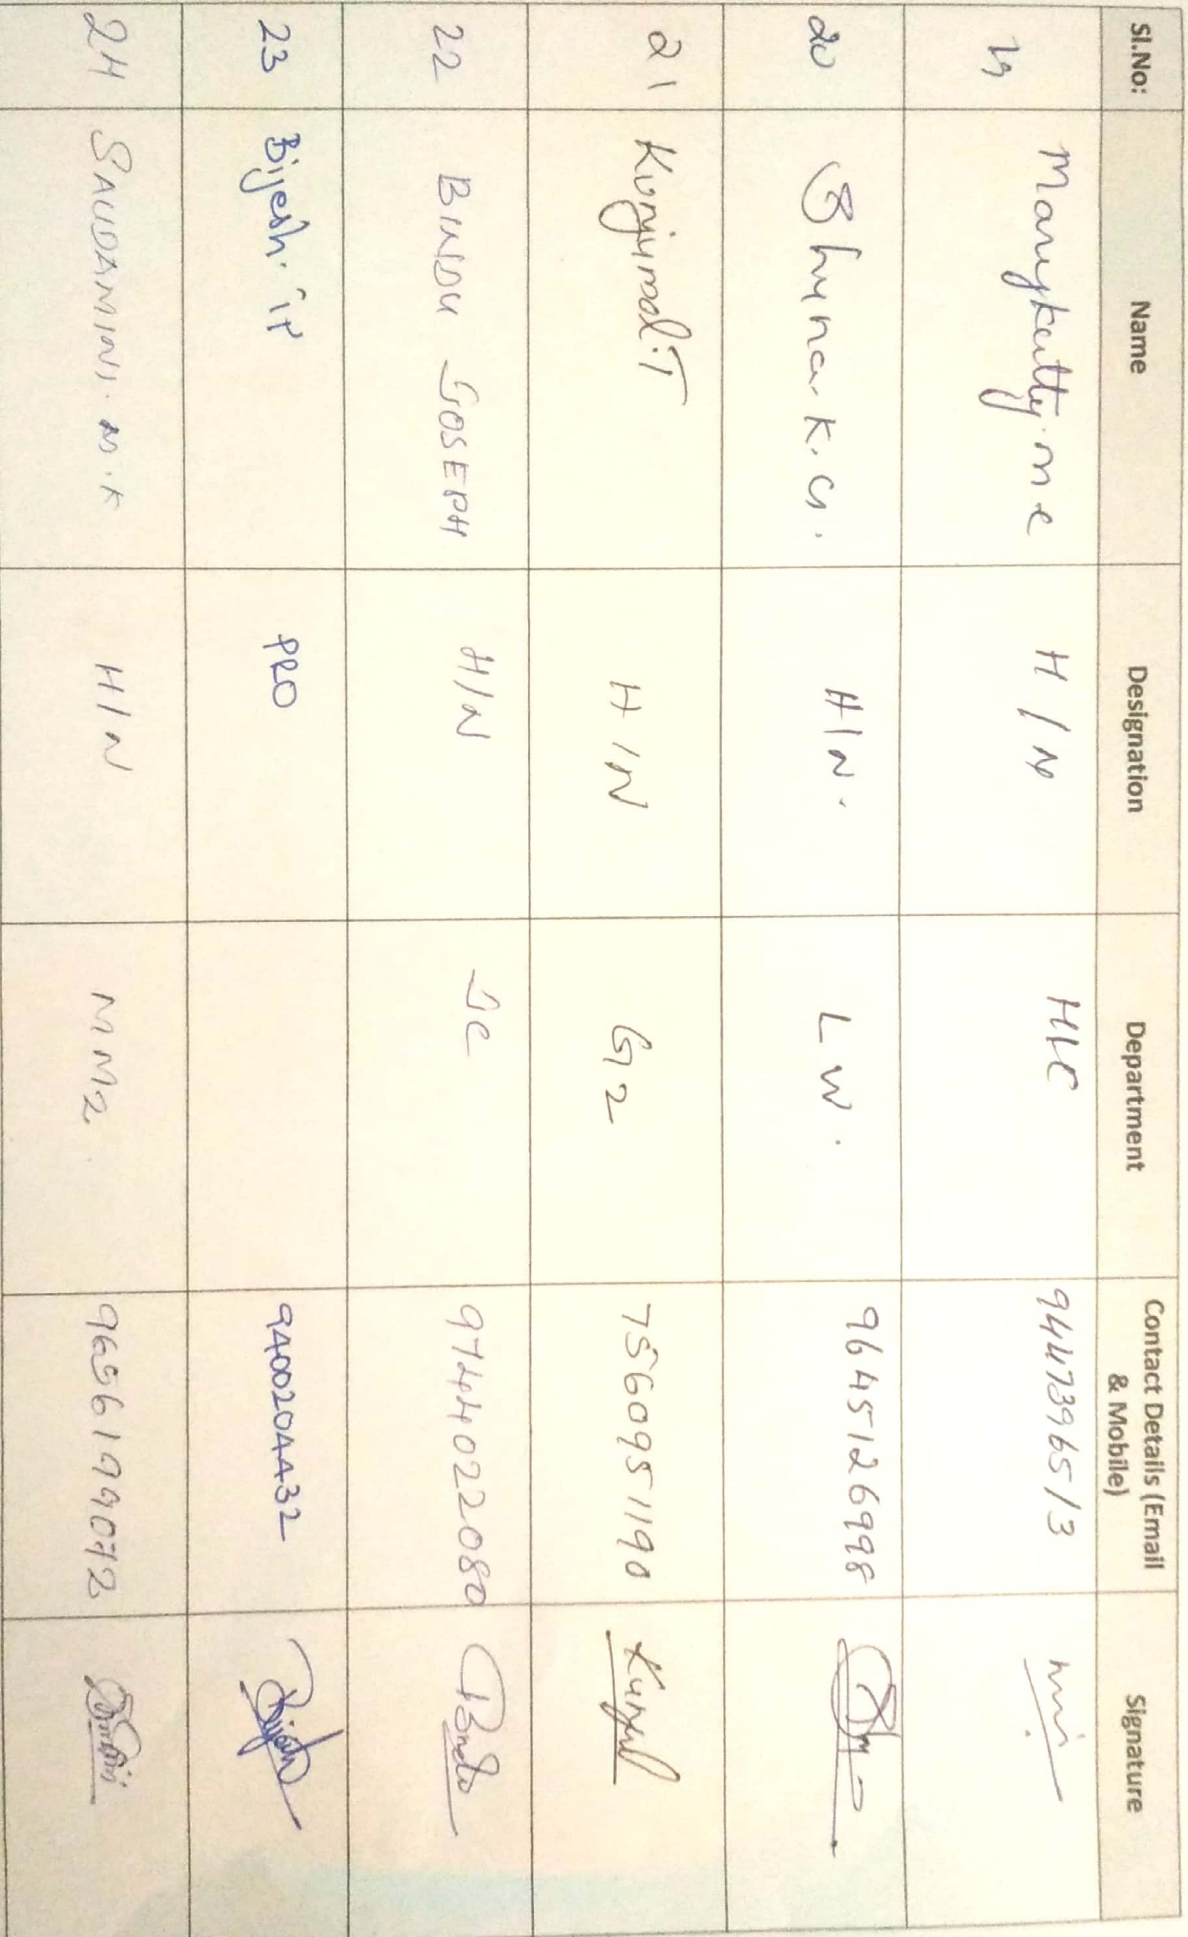 Sl.No: Name Designation Department Contact Details (Email & Mobile) Signature
19 Marykutty. m c H/N HLC 9447396513
20 Shyna. K. G. H/N. L W. 9645126998
21 Kunjumol. T H/N G2 7560951190 Kunjumol
22 BINDU JOSEPH H/N Je 9744022080 Bindu
23 Bijesh. PRO 9400204432 Bijesh
24 SAUDAMINI. M. K H/N MM2 9656199072